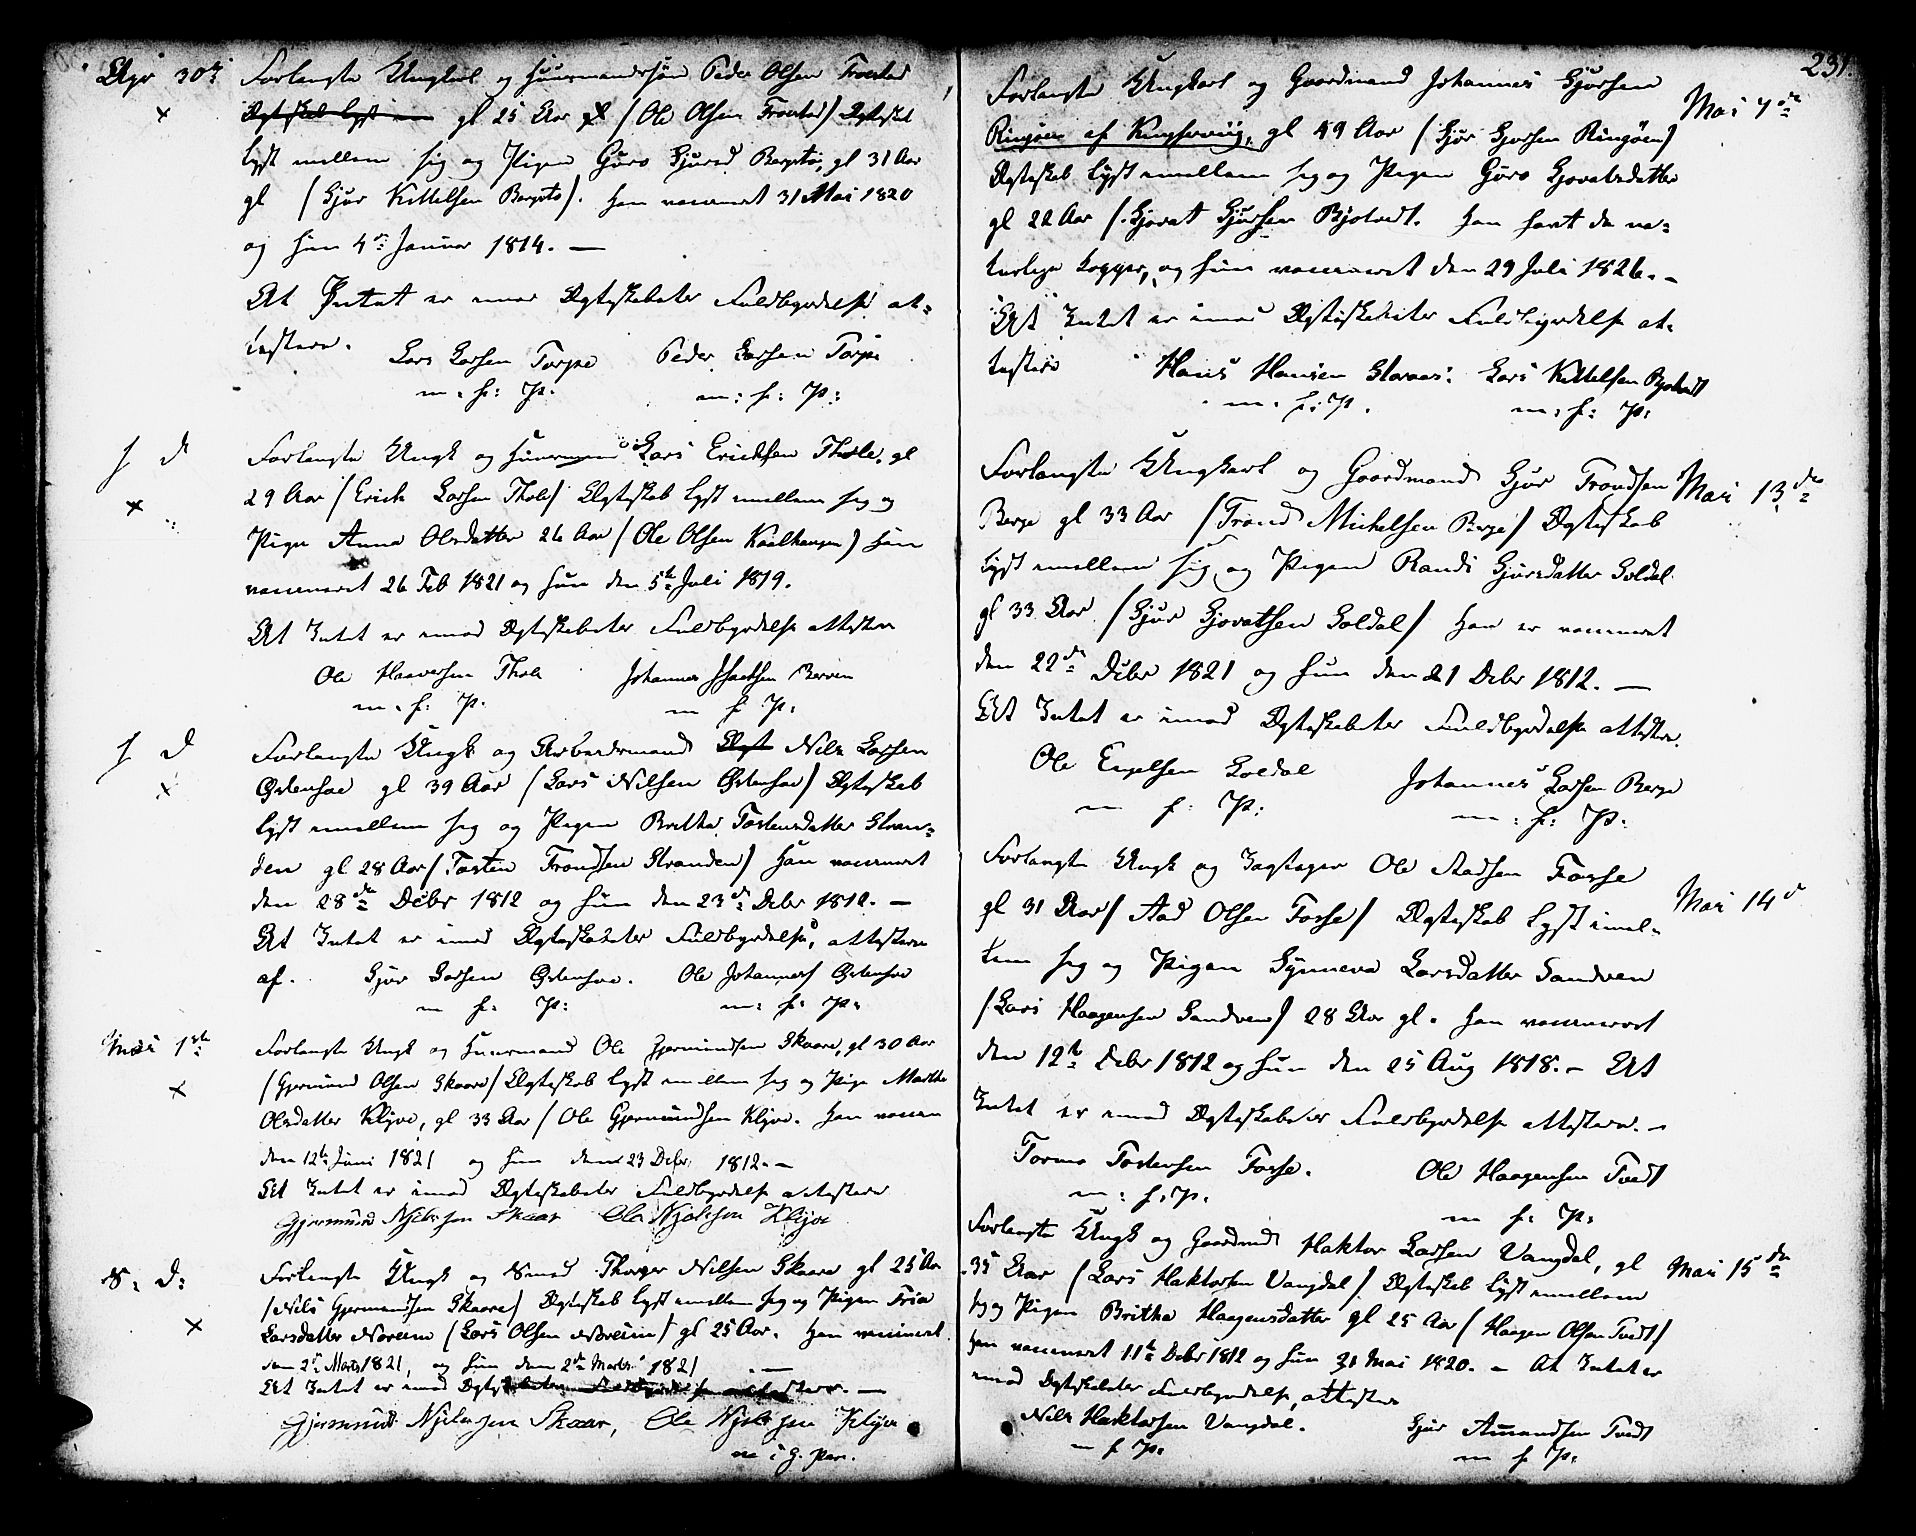 Apr 30te Forlangte Ungkarl og Huusmandssøn Peder Olsen Trovtad
Ægteskab lyst gl 25 Aar (Ole Olsen Trovtad) Ægteskab
lyst imellem sig og Pigen Guro Sjursd Bergstø, gl 31 Aar
gl (Sjur Kittelsen Bergstø). Han vaccineret 31 Mai 1820
og hun 4de Januar 1814. —
At Intet er imod Ægteskabets Fuldbyrdelse at-
testere.
Lars Larsen Torpe Peder Larsen Torpe
m: f: P: m: f: P:
s d Forlangte Ungk og Huusmand Lars Erichsen Thole, gl
29 Aar (Erich Larsen Thole) Ægteskab lyst imellem sig og
Pigen Anna Olsdatter 26 Aar (Ole Olsen Kaalhaugen) Han
vaccineret 26 Feb 1821 og hun den 5te Juli 1819.
At Intet er imod Ægteskabets Fuldbyrdelse attestere
Ole Haaversen Thole Johannes Isaksen Berven
m: f: P: m f P:
s d Forlangte Ungk og Arbeidsmand Nils Larsen
Østensøe gl 39 Aar (Lars Nilsen Østensøe) Ægteskab
lyst imellem sig og Pigen Britha Tostensdatter Stran-
den gl 28 Aar (Tosten Trondsen Stranden) Han vaccineret
den 28de Debr 1812 og hun den 23de Debr 1812. —
At Intet er imod Ægteskabets Fuldbyrdelse, attestere
af. Sjur Larsen Østensøe. Ole Johannes Østensøe
m f: P: m: f: P:
Mai 1ste Forlangte Ungk og Huusmand Ole Gjermundsen Skaare, gl 30 Aar
(Gjermund Olsen Skaare) Ægteskab lyst imellem sig og Pige Martha
Olsdatter Klyve, gl 33 Aar (Ole Gjermundsen Klyve. Han vaccin
den 12te Juni 1821 og hun den 23 Debr 1812. —
At Intet er imod Ægteskabets Fuldbyrdelse attestere
Gjermund Njelssen Skaar Ole Njelssen Klyve
S: D: Forlangte Ungk og Smed Thorger Nilsen Skaare gl 25 Aar
(Nils Gjermundsen Skaare) Ægteskab lyst imellem sig og Pigen
Larsdatter Noreim (Lars Olsen Noreim) gl 25 Aar. Han vaccineret
den 2de Marts 1821, og hun den 2de Marts 1821
At Intet er imod Ægteskabets Fuldbyrdelse attestere. —
Gjermund Njelssen Skaar, Ole Njelssen Klyve
m: i: g. pen.
231.
Forlangte Ungkarl og Gaardmand Johannes Sjursen Mai 7de
Ringøen af Kingservig, gl 49 Aar (Sjur Sjursen Ringøen)
Ægteskab lyst imellem sig og Pigen Guro Sjovatsdatter
gl 22 Aar (Sjovat Sjursen Bjotvedt. Han havt de na-
turlige kopper, og hun vaccineret den 29 Juli 1826. —
At Intet er imod Ægteskabets Fuldbyrdelse at-
testere Hans Hansen Storaas: Lars Kittelsen Bjotvedt
m: f: P. m: f: P:
Forlangte Ungkarl og Gaardmand Sjur Trondsen Mai 13de
Berge gl 33 Aar (Trond Michelsen Berge) Ægteskab
lyst imellem sig og Pigen Randi Sjursdatter Soldal
gl 33 Aar (Sjur Sjovatsen Soldal) Han er vaccineret
den 22de Debr 1821 og hun den 21 Debr 1812. —
At Intet er imod Ægteskabets Fuldbyrdelse attestere.
Ole Engelsen Soldal Johannes Larsen Berge
m f: P: m: f: P:
Forlangte Ungk og Ole Aadsen Fosse Mai 14d
gl 31 Aar (Aad Olsen Fosse) Ægteskab lyst imel-
lem sig og Pigen Synneva Larsdatter Sandven
(Lars Haagensen Sandven) 28 Aar gl. Han vaccineret
den 12te Debr 1812 og hun den 25 Aug 1818. — At
Intet er imod Ægteskabets Fuldbyrdelse attestere. —
Tormo Tostensen Fosse. Ole Haagensen Tvedt
m: f: P. m f: P:
Forlangte Ungk og Gaardmd Haktor Larsen Vangdal, gl Mai 15de
35 Aar (Lars Haktorsen Vangdal) Ægteskab lyst imellem
sig og Pigen Britha Haagensdatter gl 25 Aar (Haagen Olsen Tvedt)
Han vaccineret 11te Debr 1812 og hun 31 Mai 1820. — At Intet er
imod Ægteskabets Fuldbyrdelse, attestere
Nils Haktorsen Vangdal. Sjur Amundsen Tvedt
m f P: m f P: